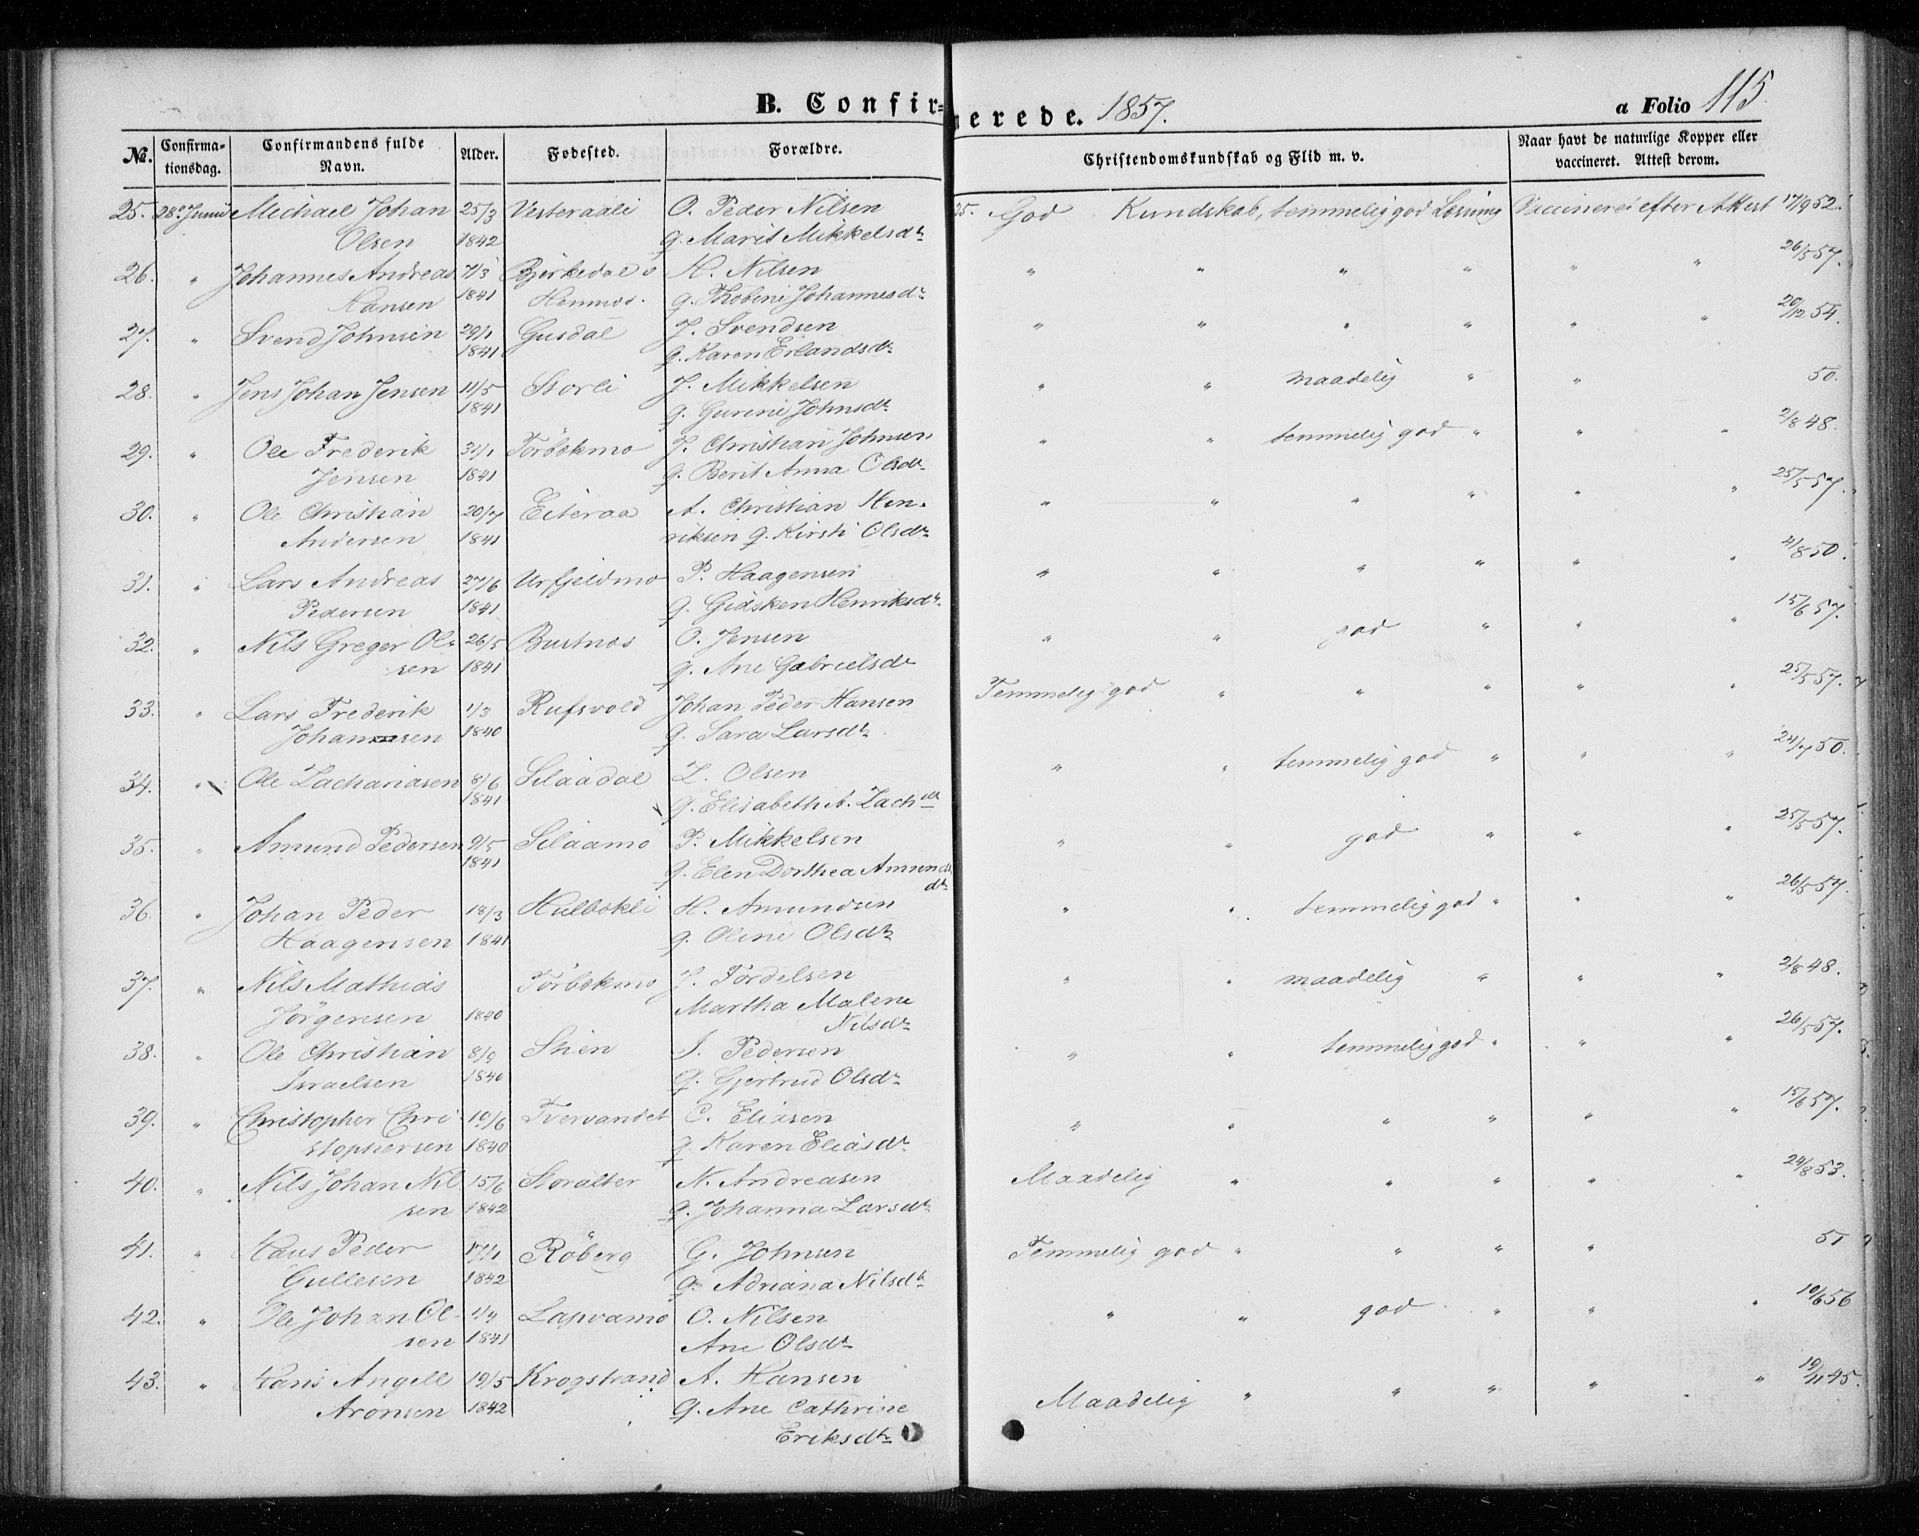 B. Confirmerede. 1857.
a Folio 115.
No. Confirmationsdag. Confirmandens fulde Navn. Alder. Fødested. Forældre. Christendomskundskab og Flid m. v. Naar havt de naturlige Kopper eller vaccineret. Attest derom.
25. 28de Junii Michael Johan 25/3 Vesteraali O. Peder Nilsen 25. God Kundskab, temmelig god Læsning Vaccineret efter Attest 17/9 52.
Olsen 1842 g. Marit Mikkelsdtr
26. " Johannes Andreas 7/3 Bjerkedal H. Nilsen " " " " " " 26/5 57.
Hansen 1841 Hemnæs. g. Johannesdtr
27. " Svend Johnsen 29/1 Gusdal J. Svendsen " " " " " " 20/12 54.
1841 g. Karen Erlandsdtr
28. " Jens Johan Jensen 11/5 Storli J. Mikkelsen " " maadelig " " 50.
1841 g. Gurine Johnsdtr
29. " Ole Frederik 31/1 Törbekmo J. Christian Johnsen " " temmelig god " " " 2/8 48.
Jensen 1841 g. Berit Anna Olsdtr
30. " Ole Christian 20/7 Eiteraa A. Christian Hen- " " " " " " 25/5 57.
Andersen 1841 riksen g. Kirsti Olsdtr
31. " Lars Andreas 27/6 Urfjeldmo P. Haagensen " " " " " " 21/8 50.
Pedersen 1841 g. Gidsken Henriksdtr
32. " Nils Greger Ol- 26/5 Bustnes O. Jensen " " god " " " 15/6 57.
sen 1841 g. Ane Gabrielsdtr
33. " Lars Frederik 1/3 Rufsvold Johan Peder Hansen Temmelig god " " " " " 25/5 57.
Johansen 1840 g. Sara Larsdtr
34. " Ole Zachariasen 8/6 Selaadal Z. Olsen " " temmelig god " " " 24/7 50.
1841 g. Elisabeth A. Zachdtr
35. " Amund Pedersen 9/5 Selaamo P. Mikkelsen " " god " " " 25/5 57.
1841 g. Elen Dorthea Amunds
dtr
36. " Johan Peder 18/3 Hulbekli H. Amundsen " " temmelig god " " " 26/5 57.
Haagensen 1841 g. Oline Olsdtr
37. " Nils Mathias Törbekmo J. Tordelsen " " maadelig " " " 2/8 48.
Jörgensen 1840 Martha Malene
Nilsdtr
38. " Ole Christian 8/9 Stien I. Pedersen " " temmelig god " " " 26/5 57.
Israelsen 1840 g. Gjertrud Olsdtr
39. " Christopher Chri- 10/6 Tvervandet C. Eliasen " " " " " " 15/6 57.
stophersen 1840 g. Karen Eliasdtr
40. " Nils Johan Nil 15/6 Storalter N. Andreasen Maadelig " " " " " 24/8 53.
sen 1842 g. Johanna Larsdtr
41. " Hans Peder 17/1 Röberg G. Johnsen Temmelig god " " " " 51
Gullesen 1842 g. Adriana Nilsdtr
42. " Ole Johan Ol- 1/4 Lapvamo O. Nilsen " " god " " " 10/6 56
sen 1841 Ane Olsdtr
43. " Hans Angell 19/5 Krogstrand A. Hansen Maadelig " " " " " 19/11 45.
Aronsen 1842 g. Ane Cathrine
Eriksdtr